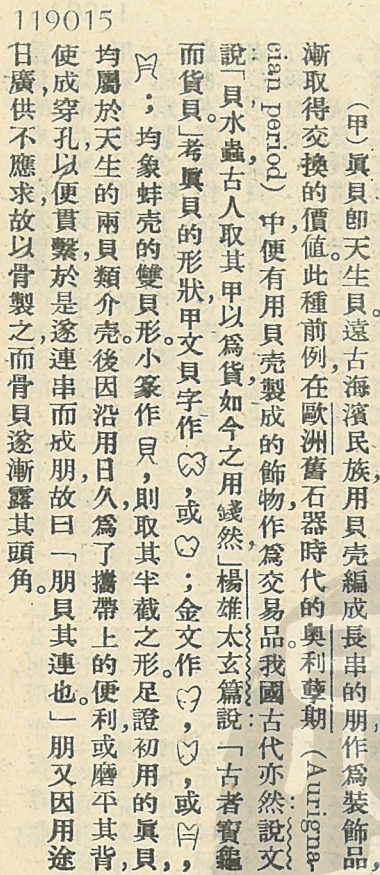 119015
(甲)眞貝卽天生貝。遠古海濱民族,用貝壳編成長串的朋作爲裝飾品,
漸取得交換的價值。此種前例,在歐洲舊石器時代的奧利孽期(Aurigna-
cian period)中便有用貝壳製成的飾物,作爲交易品。我國古代亦然:說文
說:「貝,水蟲,古人取其甲以爲貨,如今之用錢然」楊雄太玄篇說:「古者寶龜
而貨貝。」考眞貝的形狀,甲文貝字作,或;金文作,,或,
;均象蚌壳的雙貝形。小篆作,則取其半截之形。足證初用的眞貝,
均屬於天生的兩貝類介壳。後因沿用日久,爲了攜帶上的便利,或磨平其背,
使成穿孔,以便貫繫,於是遂連串而成朋,故曰「朋貝其連也。」朋又因用途
日廣,供不應求,故以骨製之,而骨貝遂漸露其頭角。